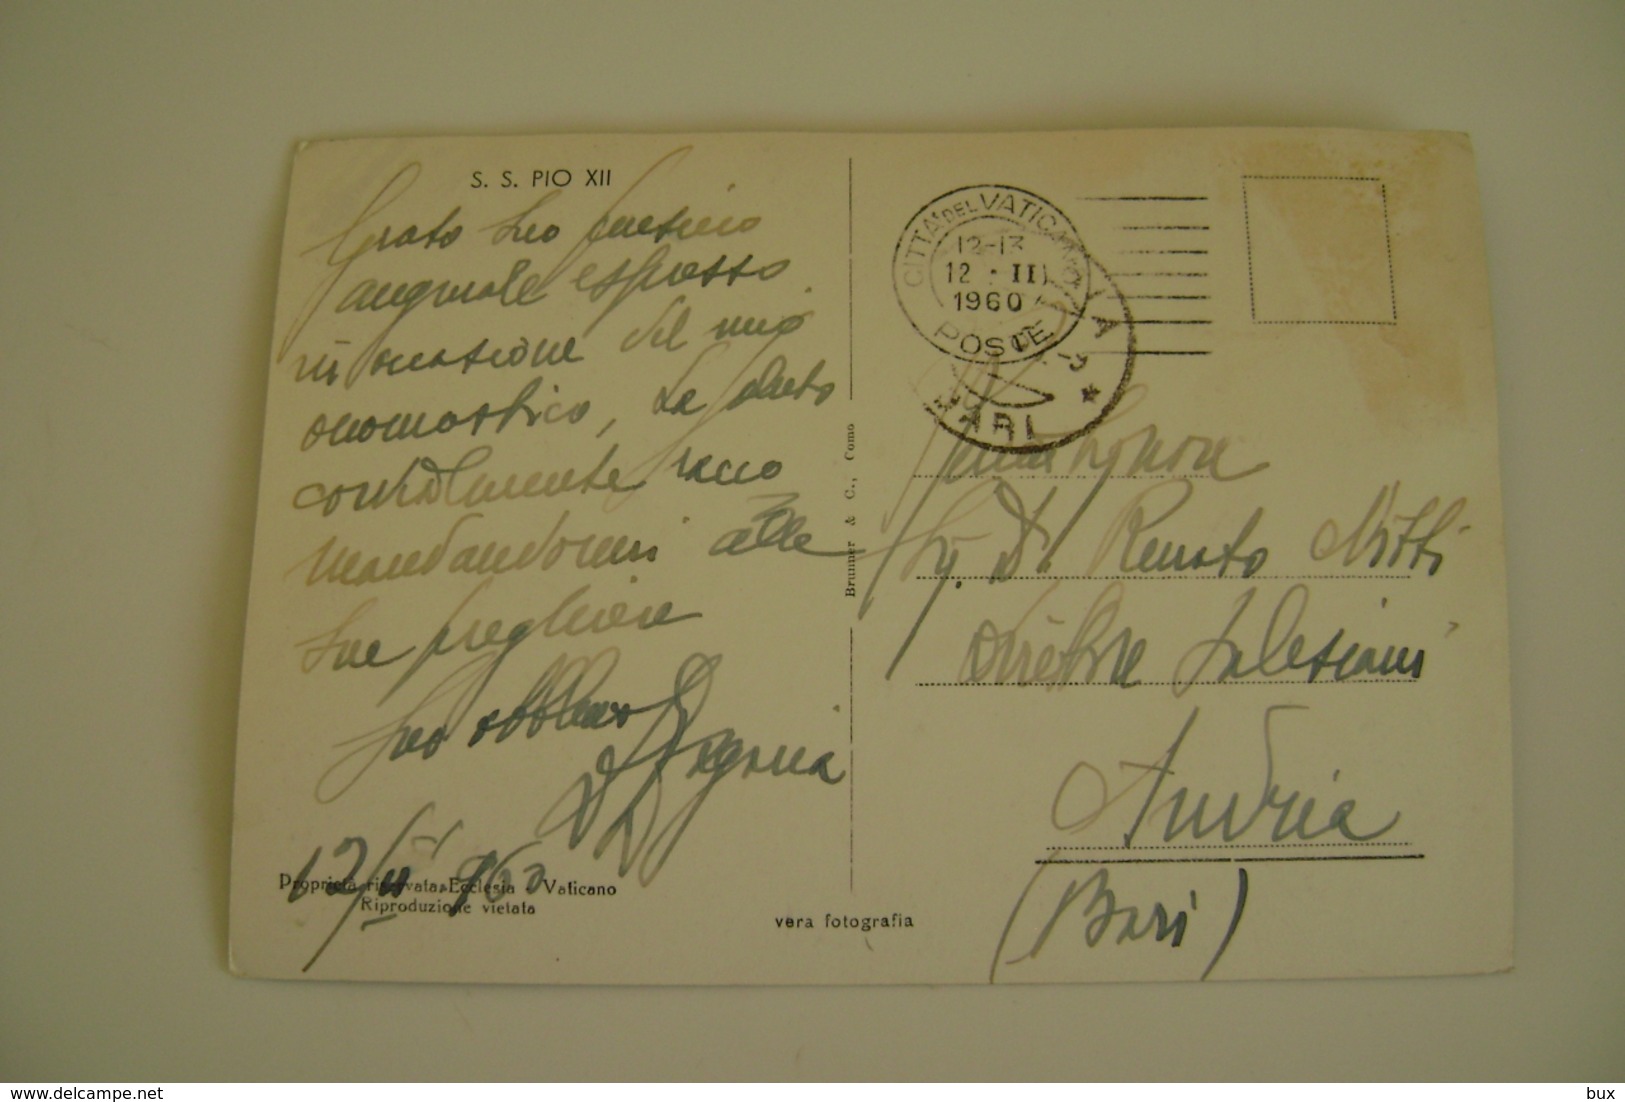 S. S. PIO XII
Grato Suo
augurale espresso
in occasione del mio
onomastico, La saluto
cordialmente
raccomandandomi alle
Sue preghiere
Suo obbl.mo
12/II 960
Proprietà riservata Ecclesia - Vaticano
Riproduzione vietata
vera fotografia
Brunner & C., Como
CITTÀ DEL VATICANO
12-13
12 · II
1960
POSTE
ANDRIA
BARI
Sig. D. Renato Nitti
Direttore Salesiani
Andria
(Bari)
bux
delcampe.net